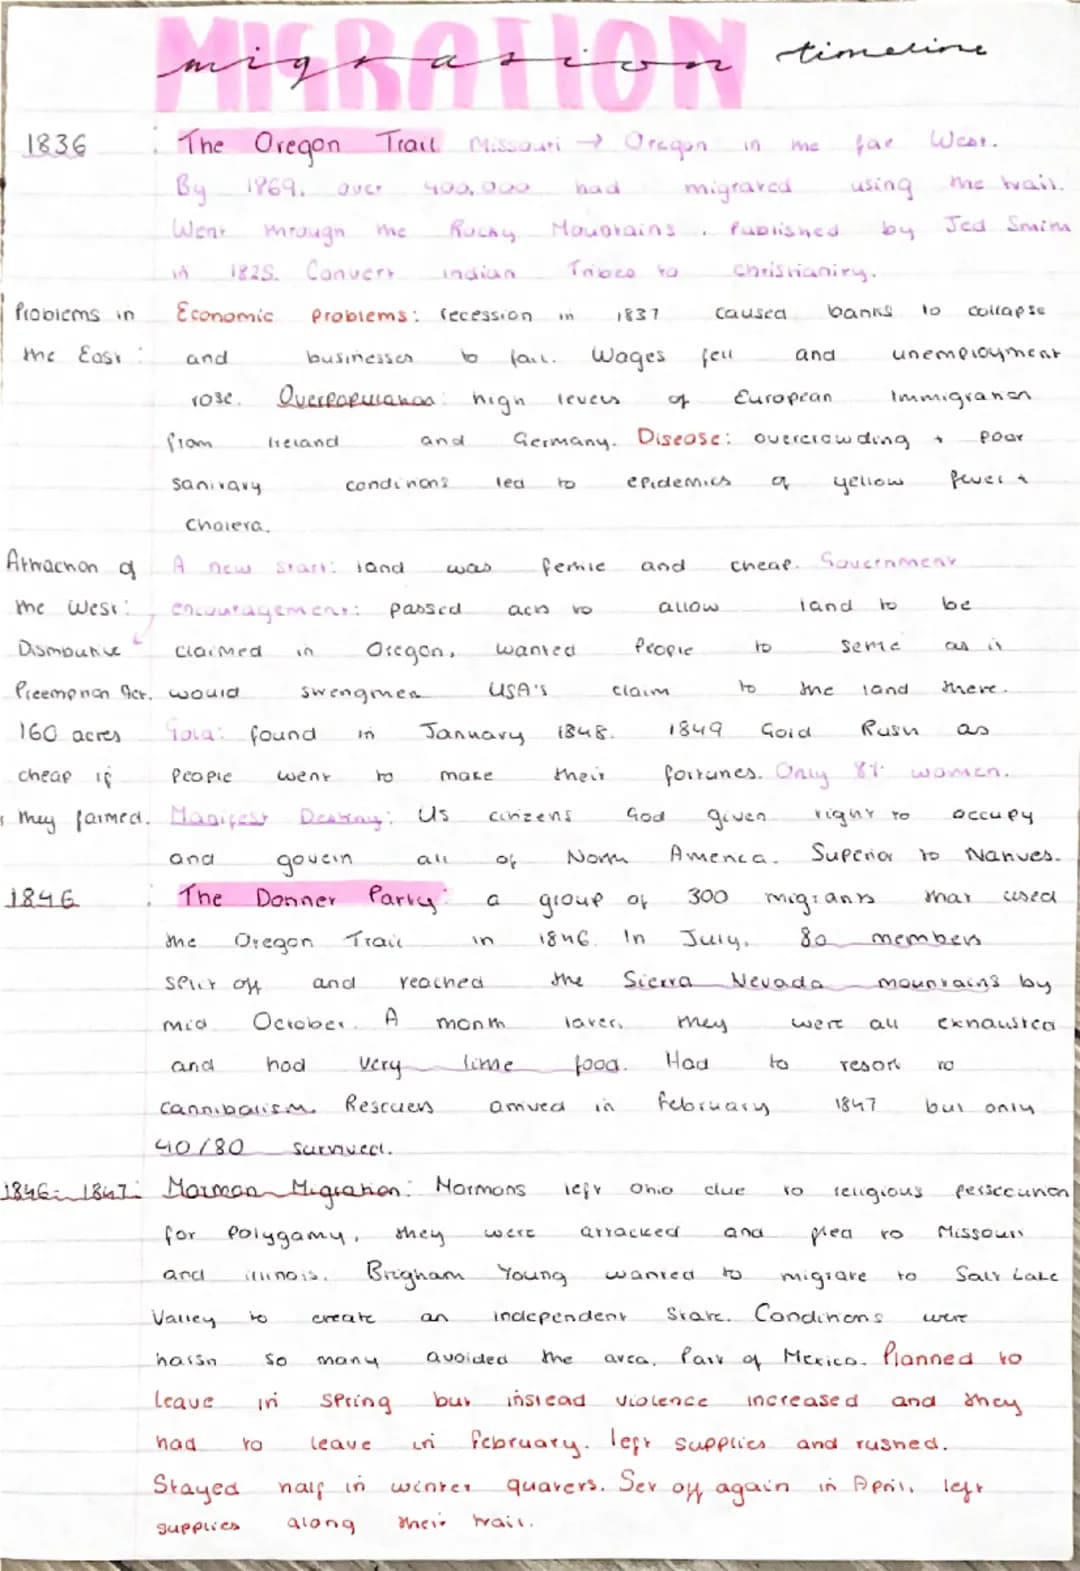 MIGRATION
migration timeline
1836 : The Oregon Trail Missouri → Oregon in the far West.
By 1869, over 400,000 had migrated using the trail.
Went through the Rocky Mountains. Published by Jed Smith
in 1825. Convert indian Tribes to christianity.
Problems in Economic problems: recession in 1837 caused banks to collapse
the East : and businesses to fail. Wages fell and unemployment
rose. Overpopulation: high levels of European Immigration
from Ireland and Germany. Disease: overcrowding + poor
sanitary conditions led to epidemics of yellow fever +
cholera.
Attraction of A new start: land was fertile and cheap. Government
the West: encouragement: passed acts to allow land to be
Distributive claimed in Oregon, wanted people to settle as it
Preemption Act. would strengthen USA's claim to the land there.
160 acres Gold: found in January 1848. 1849 Gold Rush as
cheap if people went to make their fortunes. Only 8% women.
they farmed. Manifest Destiny: US citizens God given right to occupy
and govern all of North America. Superior to Natives.
1846 : The Donner Party: a group of 300 migrants that used
the Oregon Trail in 1846. In July, 80 members
split off and reached the Sierra Nevada mountains by
mid October. A month later, they were all exhausted
and had very little food. Had to resort to
cannibalism. Rescuers arrived in february 1847 but only
40/80 survived.
1846-1847: Mormon Migration: Mormons left Ohio due to religious persecution
for polygamy, they were attacked and fled to Missouri
and illinois. Brigham Young wanted to migrate to Salt Lake
Valley to create an independent state. Conditions were
harsh so many avoided the area. Part of Mexico. Planned to
leave in spring but instead violence increased and they
had to leave in february. left supplies and rushed.
Stayed half in winter quaters. Set off again in April, left
supplies along their trail.